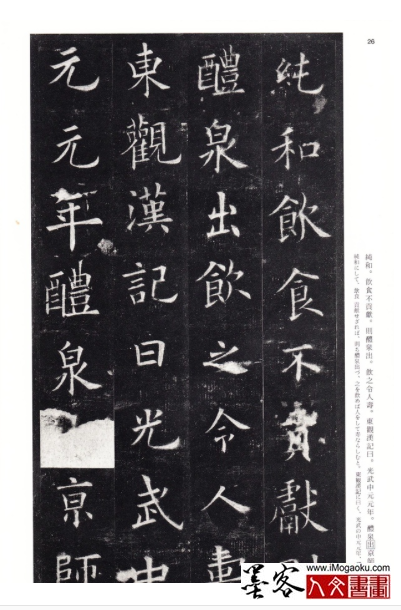 26
純和。飲食不貢獻。則醴泉出。飲之令人壽。東觀漢記曰。光武中元元年。醴泉出京師
純和にして、飲食 貢献せざれば、則ち醴泉出づ。之を飲めば人をして寿ならしむと。東観漢記に曰く、光武の中元元年、
純和飲食不貢獻則
醴泉出飲之令人壽
東觀漢記曰光武中
元元年醴泉亰師
www.iMogaoku.com
墨客